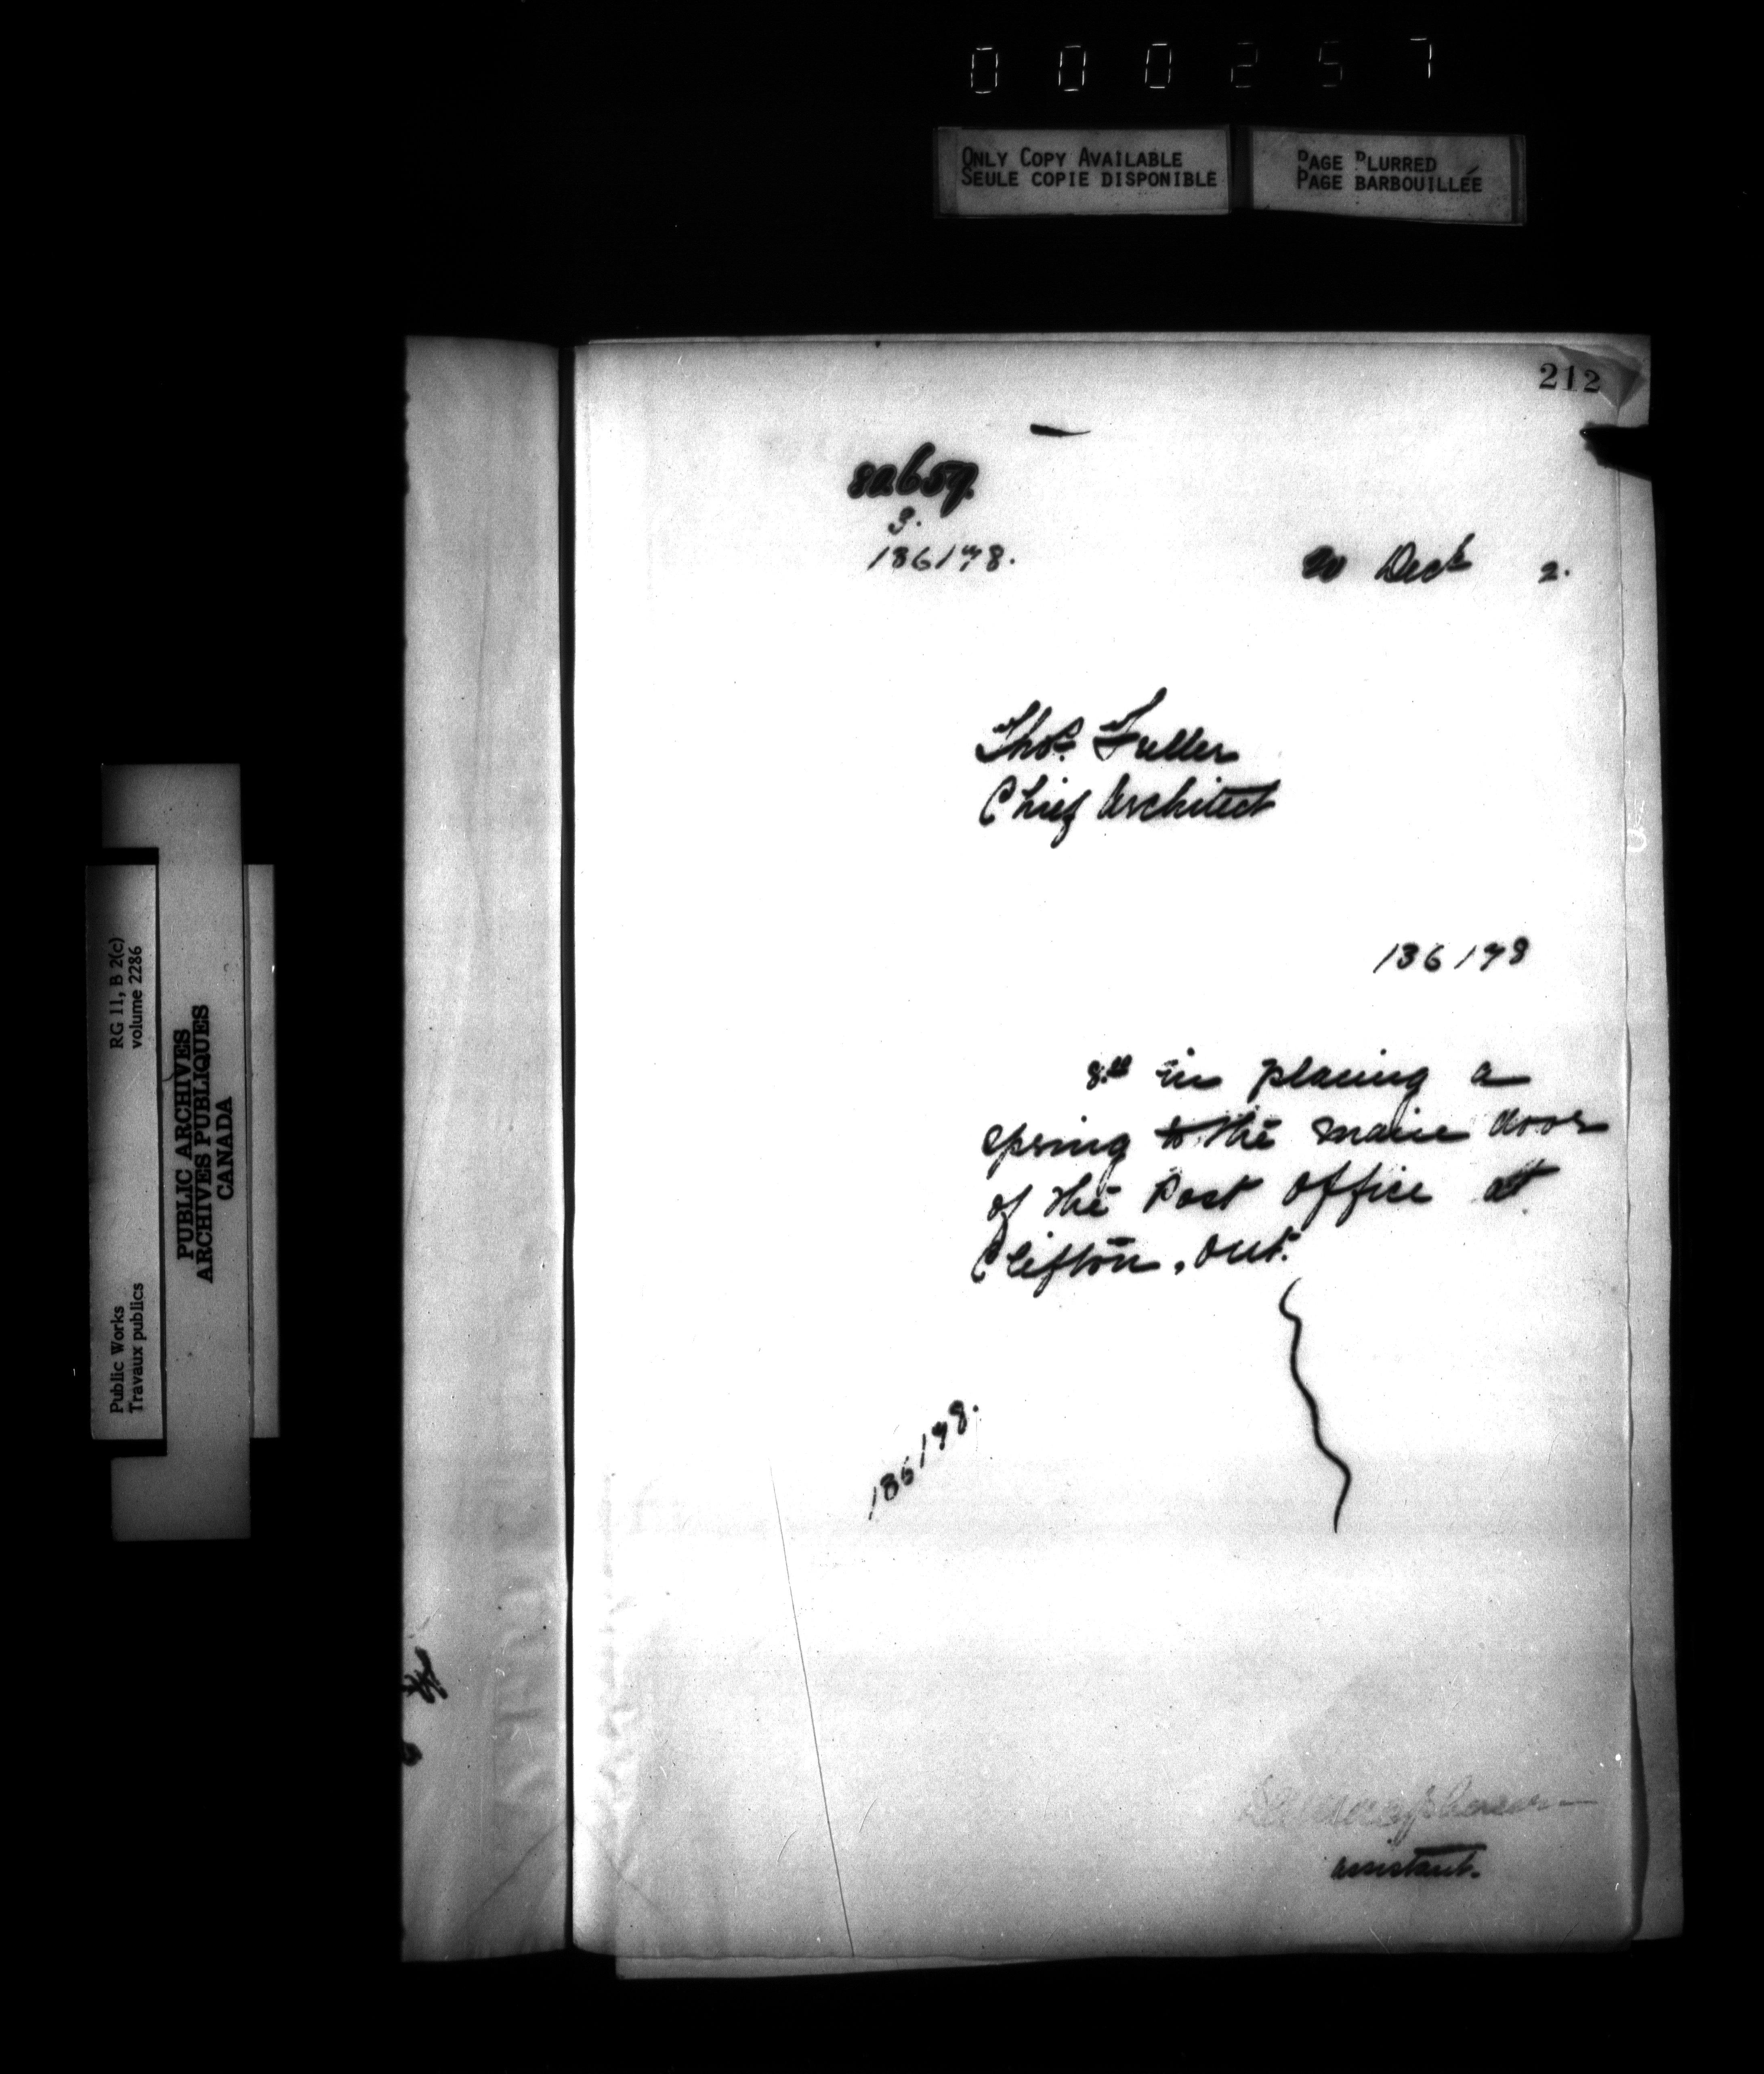 000257
ONLY COPY AVAILABLE
SEULE COPIE DISPONIBLE
PAGE BLURRED
PAGE BARBOUILLÉE
212
3.
186178.
20 Decr 2.
Thos. Fuller
Chief Architect
136178
8.00 in placing a
spring to the main door
of the Post Office at
Clifton, Ont.
186178.
assistant.
RG 11, B 2(c)
volume 2286
PUBLIC ARCHIVES
ARCHIVES PUBLIQUES
CANADA
Public Works
Travaux publics